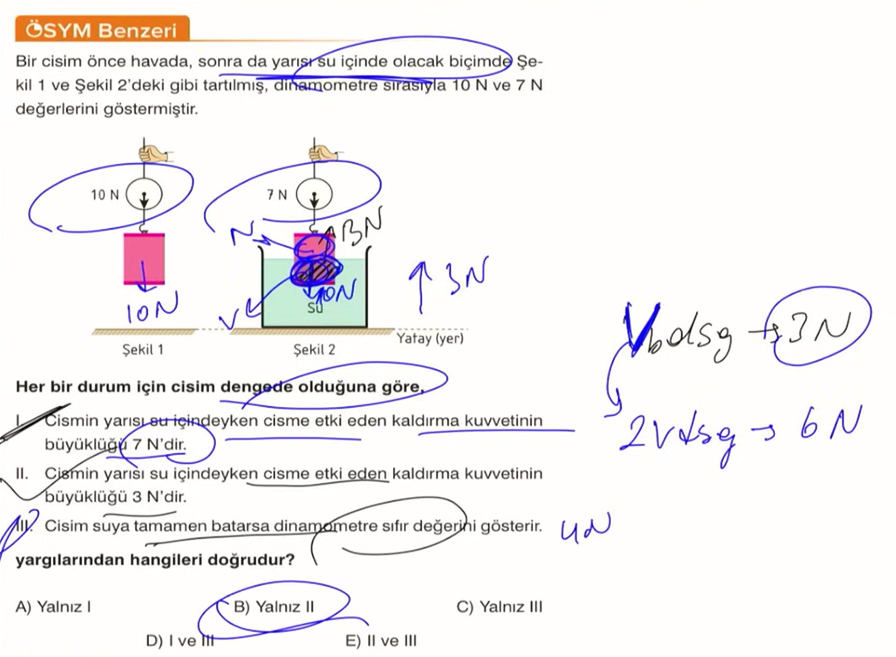 ÖSYM Benzeri
Bir cisim önce havada, sonra da yarısı su içinde olacak biçimde Şe-
kil 1 ve Şekil 2'deki gibi tartılmış, dinamometre sırasıyla 10 N ve 7 N
değerlerini göstermiştir.
10 N
7 N
3N
V
V
10N
10N
su
3N
Şekil 1
Şekil 2
Yatay (yer)
Vb dsg → 3N
2V dsg → 6N
Her bir durum için cisim dengede olduğuna göre,
I. Cismin yarısı su içindeyken cisme etki eden kaldırma kuvvetinin
büyüklüğü 7 N'dir.
II. Cismin yarısı su içindeyken cisme etki eden kaldırma kuvvetinin
büyüklüğü 3 N'dir.
III. Cisim suya tamamen batarsa dinamometre sıfır değerini gösterir.
4N
yargılarından hangileri doğrudur?
A) Yalnız I
B) Yalnız II
C) Yalnız III
D) I ve III
E) II ve III